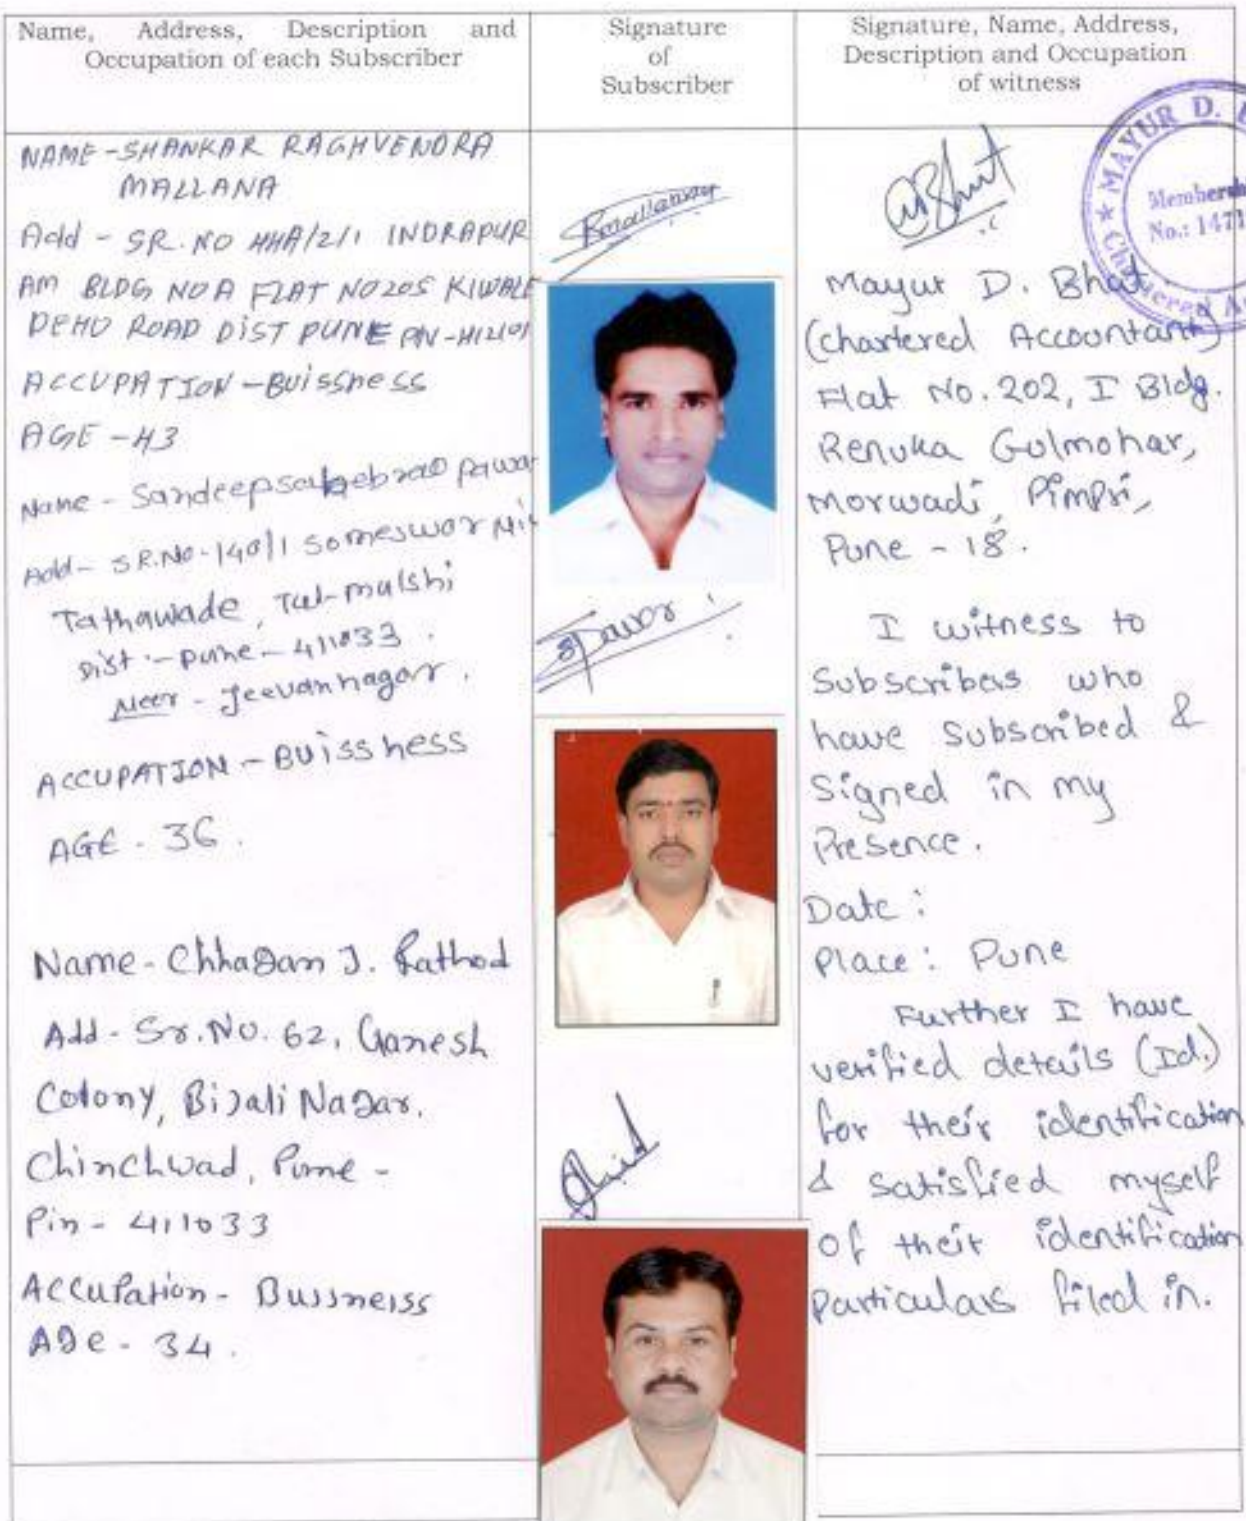 Name, Address, Description and
Occupation of each Subscriber
Signature
of
Subscriber
Signature, Name, Address,
Description and Occupation
of witness
NAME - SHANKAR RAGHVENDRA
MALLANA
Add - SR. NO 44A/2/1 INDRAPUR
AM BLDG NO A FLAT NO 205 KIWALE
DEHU ROAD DIST PUNE PIN - 412101
ACCUPATION - BUISSNESS
AGE - 43
Name - Sandeep sahebrao pawa
Add - SR.No - 140/1 someswor
Tathawade, Tal- mulshi
Dist :- pune - 411033.
Neer - Jeevannagar.
ACCUPATION - BUISSNESS
AGE - 36.
Name - Chhagan J. Rathod
Add - Sr. No. 62, Ganesh
Colony, Bijali Nagar,
Chinchwad, Pune -
Pin - 411033
ACCUPation - Bussneiss
Age - 34.
Spawar
MAYUR D.
Membersh
No.: 1471
Mayur D. Bhat
(Chartered Accountant)
Flat No. 202, I Bldg.
Renuka Gulmohar,
Morwadi, Pimpri,
Pune - 18.
I witness to
Subscribers who
have Subscribed &
Signed in my
Presence.
Date :
Place : Pune
Further I have
verified details (Id.)
for their identification
& satisfied myself
of their identification
particulars filed in.